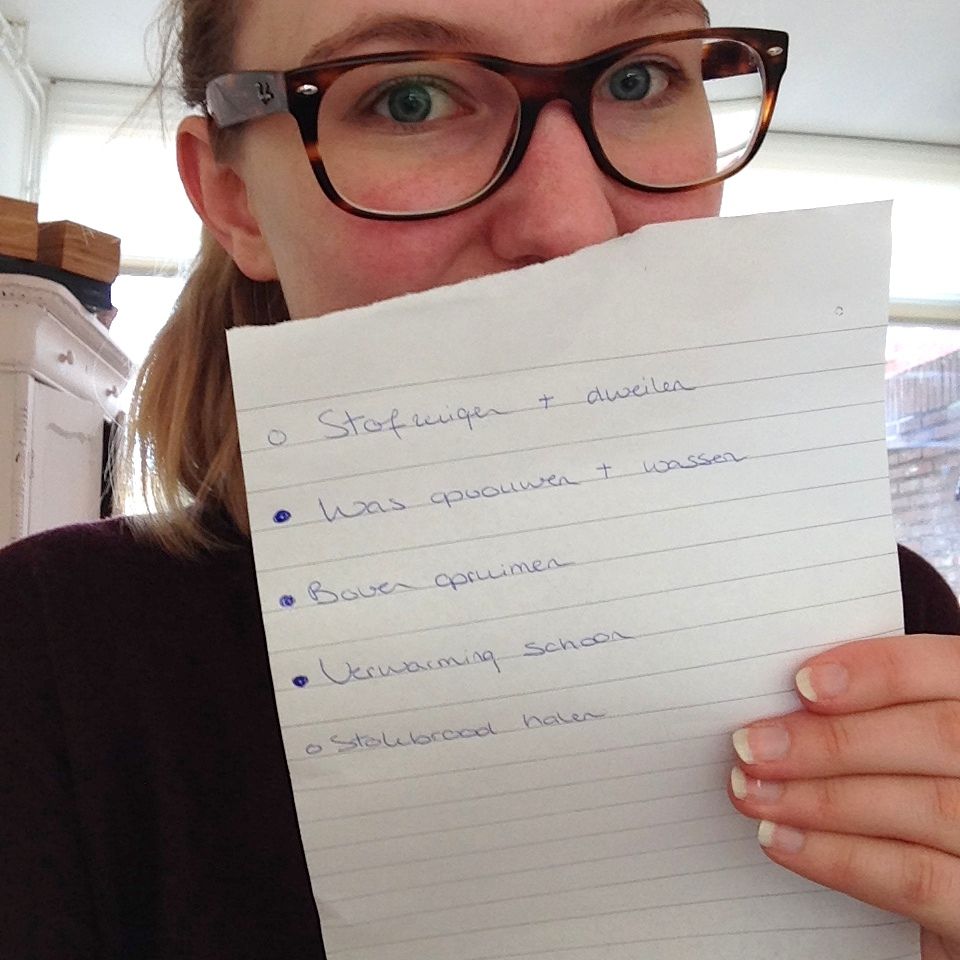 o Stofzuigen + dweilen
• Was opvouwen + wassen
• Boven opruimen
• Verwarming schoon
o Stokbrood halen